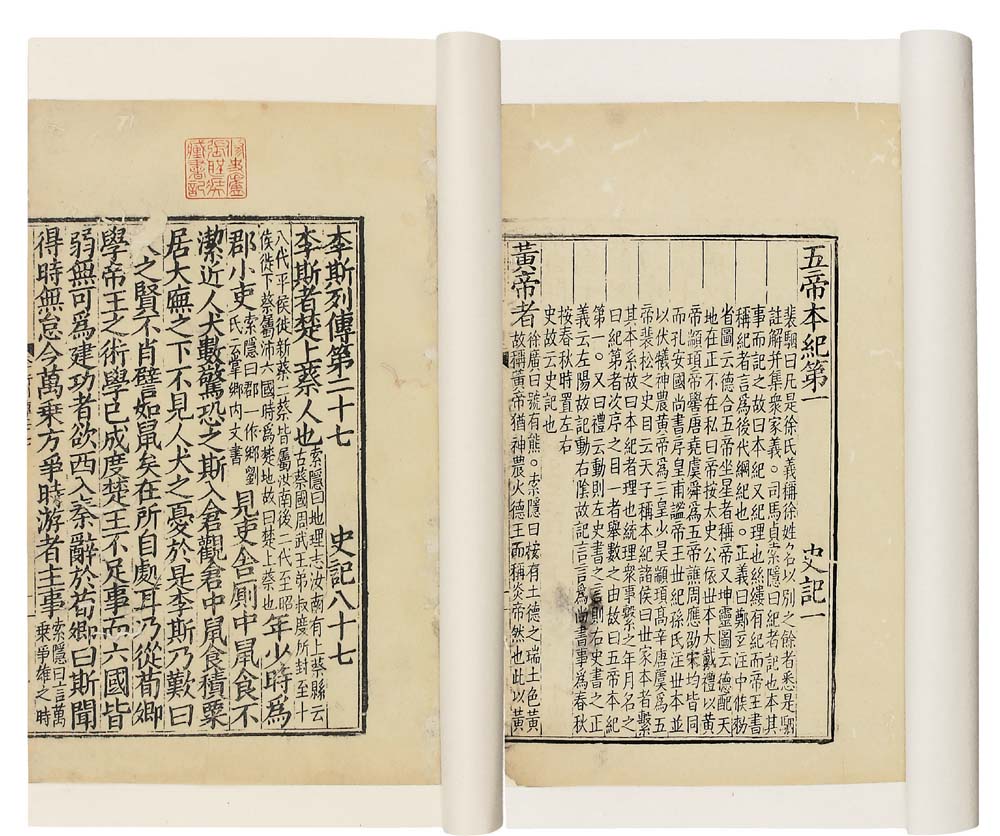 五帝本紀第一　史記一
裴駰曰凡是徐氏義稱徐姓名以別之餘者悉是駰
註解并集衆家義。司馬貞索隱曰紀者記也本其
事而記之故曰本紀又紀理也絲縷有紀而帝王書
稱紀者言爲後代綱紀也。正義曰鄭玄注中候
省圖云德合五帝坐星者稱帝又坤靈圖云德配天
地在正不在私曰帝按太史公依世本大戴禮以黃
帝顓頊帝嚳唐堯虞舜爲五帝譙周應劭宋均皆同
而孔安國尚書序皇甫謐帝王世紀孫氏注世本並
以伏犧神農黃帝爲三皇少昊顓頊高辛唐虞爲五
帝裴松之史目云天子稱本紀諸侯曰世家本者繫
其本系故曰本紀者理也統理衆事繫之年月名之
曰紀第者次序之目一者舉數之由故曰五帝本紀
第一。又曰禮云動則左史書之言則右史書之正
義云左陽故記動右陰故記言言爲尚書事爲春秋
按春秋時置左右
史故云史記也
黃帝者
徐廣曰號有熊。索隱曰按有土德之瑞土色黃
故稱黃帝猶神農火德王而稱炎帝然也此以黃
李斯列傳第二十七　史記八十七
李斯者楚上蔡人也
索隱曰地理志汝南有上蔡縣云
古蔡國周武王弟叔度所封至十
八代平侯徙新蔡二蔡皆屬汝南後二代至昭
侯徙下蔡屬沛六國時爲楚地故曰楚上蔡也
年少時爲
郡小吏
索隱曰郡一作鄉劉
氏云掌鄉內文書
見吏舍厠中鼠食不
潔近人犬數驚恐之斯入倉觀倉中鼠食積粟
居大廡之下不見人犬之憂於是李斯乃歎曰
人之賢不肖譬如鼠矣在所自處耳乃從荀卿
學帝王之術學已成度楚王不足事而六國皆
弱無可爲建功者欲西入秦辭於荀卿曰斯聞
得時無怠今萬乘方爭時游者主事
索隱曰言萬
乘爭雄之時